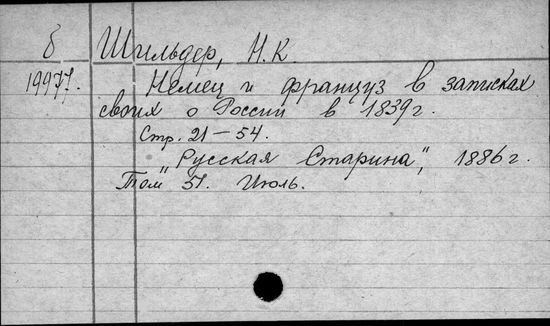 б Шильдер, Н.К.
19977. Немец и француз в записках
своих о России в 1839 г.
Стр. 21-54.
"Русская Старина", 1886 г.
Том 51. Июль.